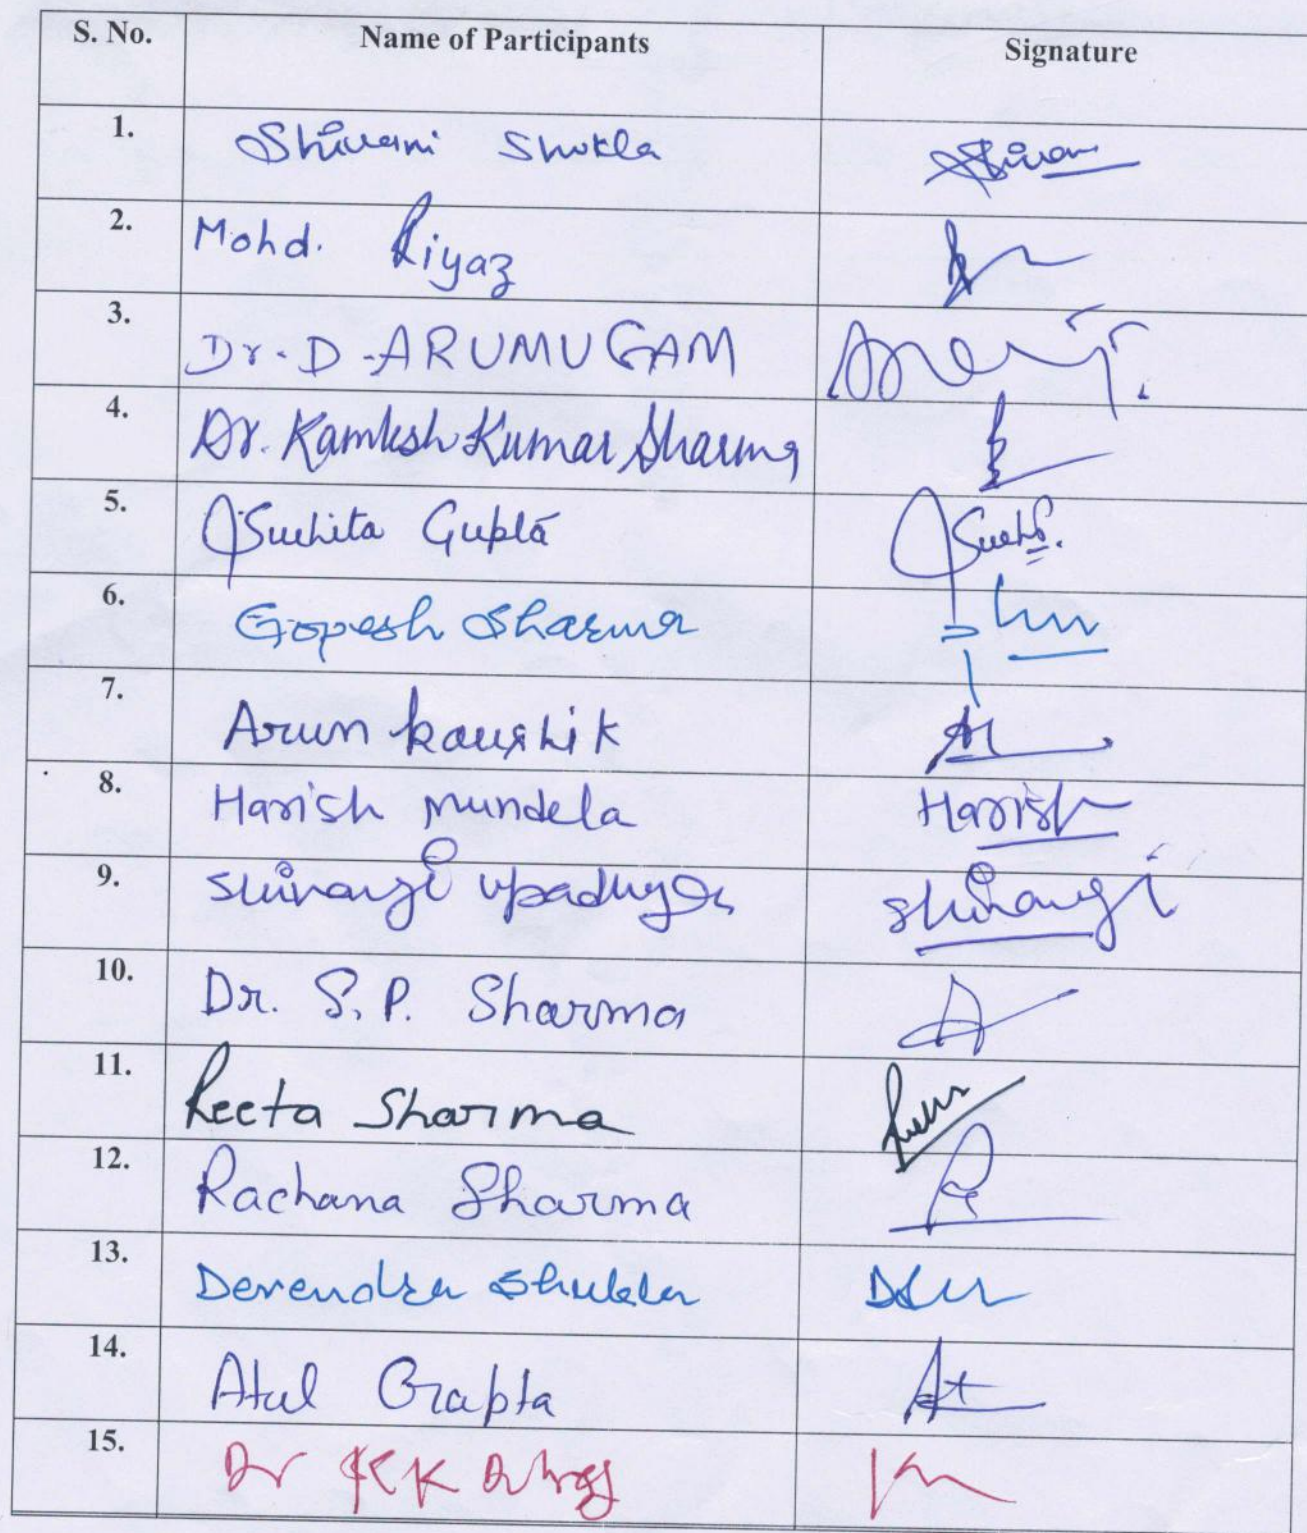 S. No. Name of Participants Signature
1. Shivani Shukla Shivan
2. Mohd. Riyaz
3. Dr. D. ARUMUGAM
4. Dr. Kamlesh Kumar Sharma
5. Suchita Gupta
6. Gopesh Sharma
7. Arun Kaushik
8. Harish Mundela Harish
9. Shivangi Upadhyay Shivangi
10. Dr. S.P. Sharma
11. Reeta Sharma
12. Rachana Sharma
13. Devendra Shukla
14. Atul Gupta
15. Dr KK